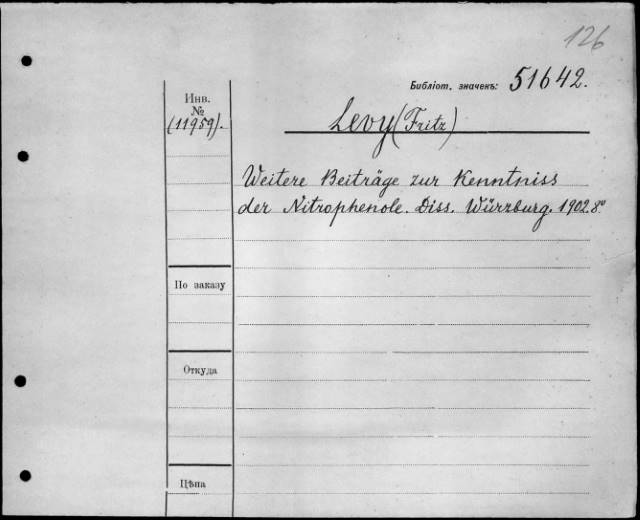 126
Библіот. значекъ: 51642.
Инв.
№
(11959).
Levy (Fritz)
Weitere Beiträge zur Kenntniss
der Nitrophenole. Diss. Würzburg. 1902. 8º
По заказу
Откуда
Цѣна